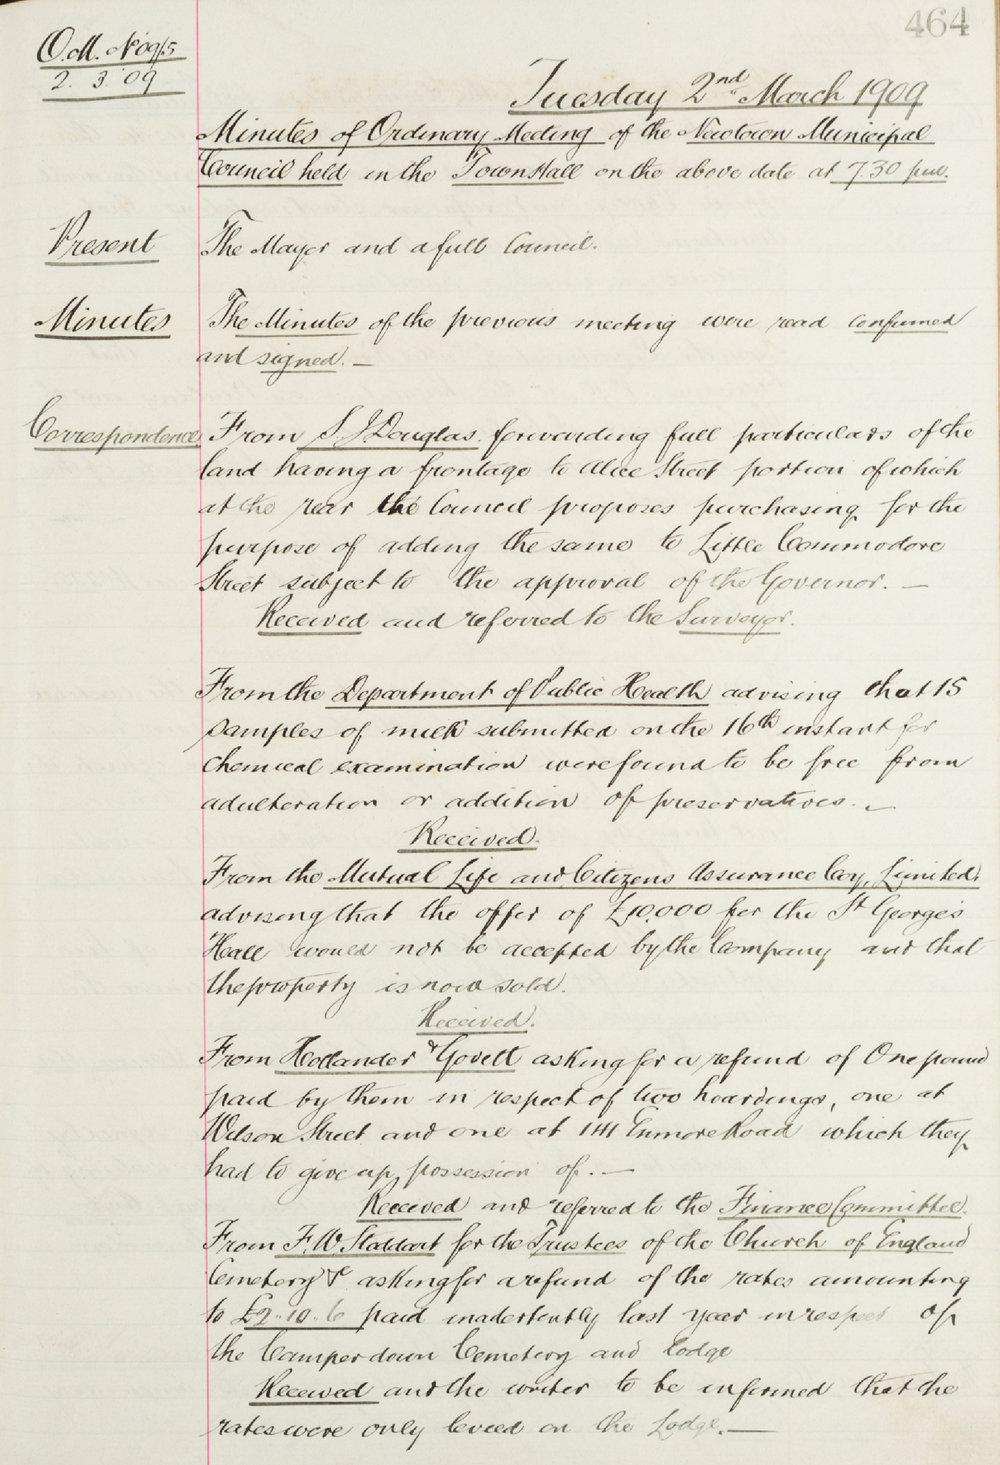 464
O.M. No 9/5
2. 3 09
Tuesday 2nd March 1909
Minutes of Ordinary Meeting of the Newtown Municipal
Council held in the Town Hall on the above date at 7.30 pm.
Present
The Mayor and a full Council.
Minutes
The Minutes of the previous meeting were read confirmed
and signed. —
Correspondence
From S. J Douglas. forwarding full particulars of the
land having a frontage to Alice Street portion of which
at the rear the Council proposes purchasing for the
purpose of adding the same to Little Commodore
Street subject to the approval of the Governor. —
Received and referred to the Surveyor.
From the Department of Public Health advising that 15
samples of milk submitted on the 16th instant for
chemical examination were found to be free from
adulteration or addition of preservatives. —
Received.
From the Mutual Life and Citizens Assurance Coy, Limited.
advising that the offer of £10,000 for the St George's
Hall would not be accepted by the Company and that
the property is now sold.
Received.
From Hollander & Govett asking for a refund of One pound
paid by them in respect of two hoardings, one at
Wilson Street and one at 141 Enmore Road which they
had to give up possession of. —
Received and referred to the Finance Committee.
From F. W. Stoddart for the Trustees of the Church of England
Cemetery asking for a refund of the rates amounting
to £9. 10. 6 paid inadertently last year in respect of
the Camperdown Cemetery and Lodge
Received and the writer to be informed that the
rates were only levied on the Lodge. —